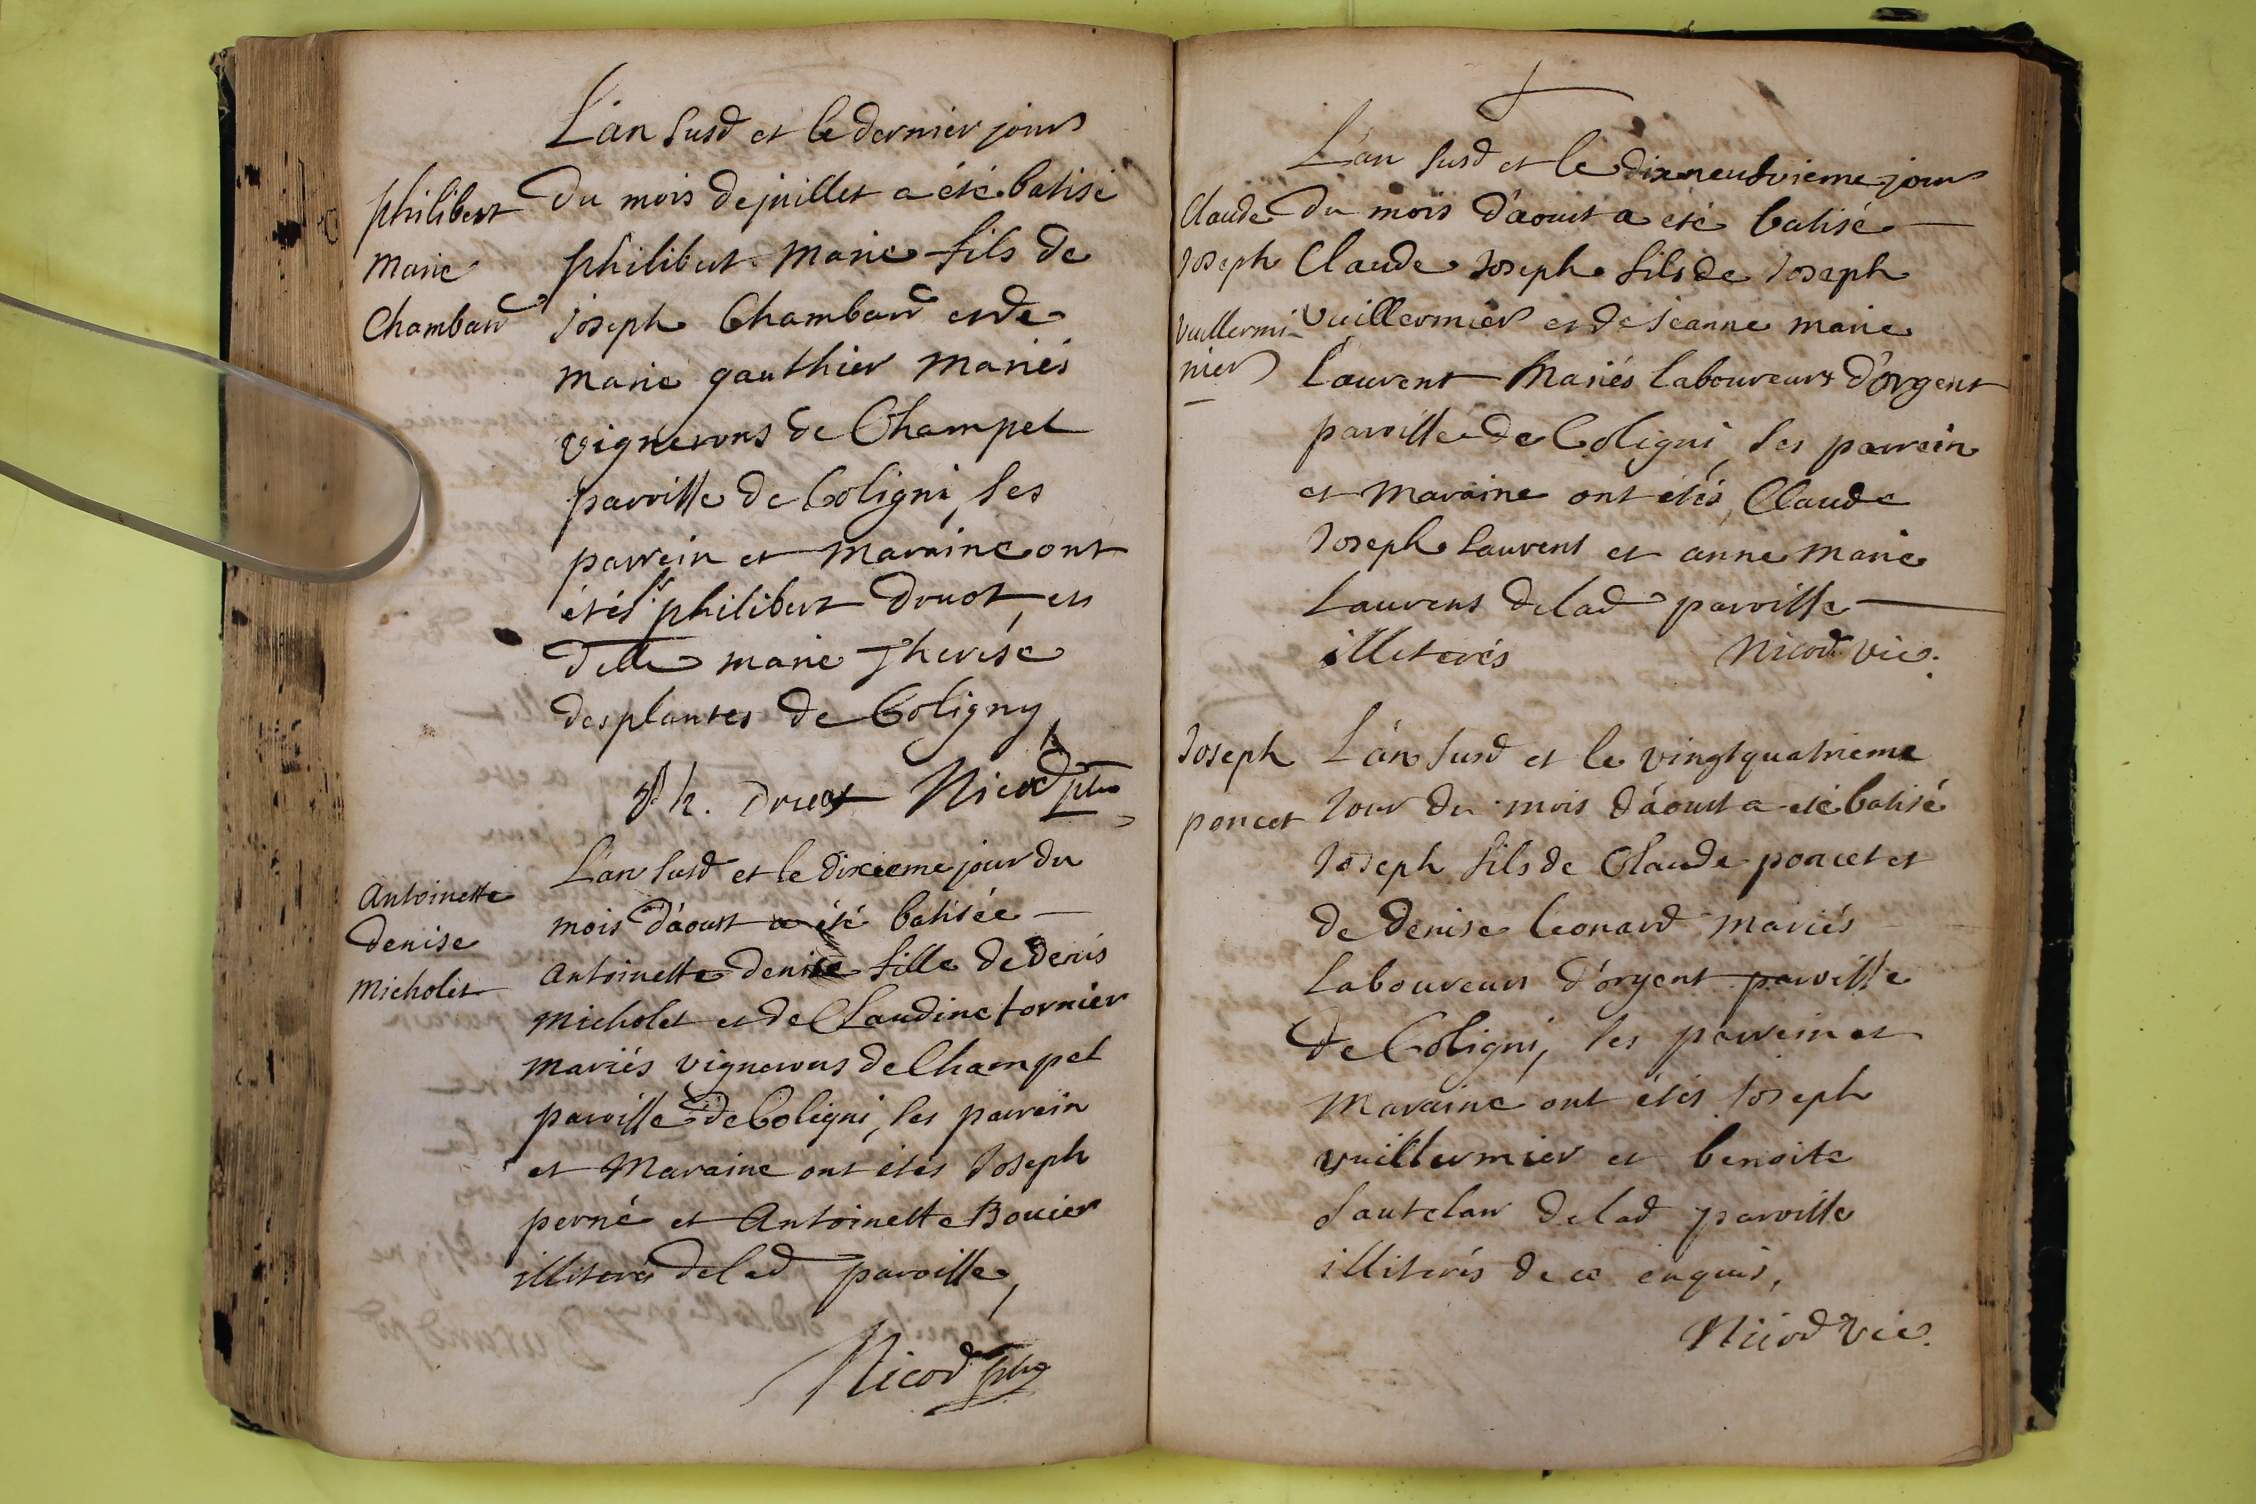 L'an susd et le dernier jours
philibert
marie
Chambard
Du mois de juillet a été batisé
philibert marie fils de
joseph Chambard et de
marie gauthier mariés
vignerons de Champel
paroisse de Coligni, ses
parrein et maraine ont
étés Sr philibert Druot, et
Delle marie Therése
desplantes de Coligny
Ph. Druot Nicod ptre
Antoinette
denise
micholet
L'an susd et le dixieme jour du
mois d'áoust a été batisée
Antoinette denise fille de denis
micholet et de Claudine tornier
mariés vignerons de Champel
paroisse de Coligni, ses parrein
et Maraine ont étés Joseph
perné et Antoinette Bouier
illiterés de lad paroisse,
Nicod ptre
L'an susd et le dixneufvieme jour
Claude
Joseph
Vuillermi
nier
Du mois d'áoust a eté batisé
Claude Joseph fils de Joseph
Vuillermier et de jeanne marie
Laurent Mariés laboureurs d'órgent
paroisse de Coligni, ses parrein
et maraine ont étés, Claude
Joseph Laurent et anne marie
Laurens de lad paroisse
illiterés Nicod vic.
Joseph
poncet
L'an susd et le vingtquatrieme
Jour du mois d'áoust a eté batisé
Joseph fils de Claude poncet et
de denise Leonard mariés
Laboureurs d'órgent paroisse
de Coligni, ses parrein et
Maraine ont étés Joseph
vuillermier et benoite
de lad paroisse
illiterés de ce enquis,
Nicod Vic.